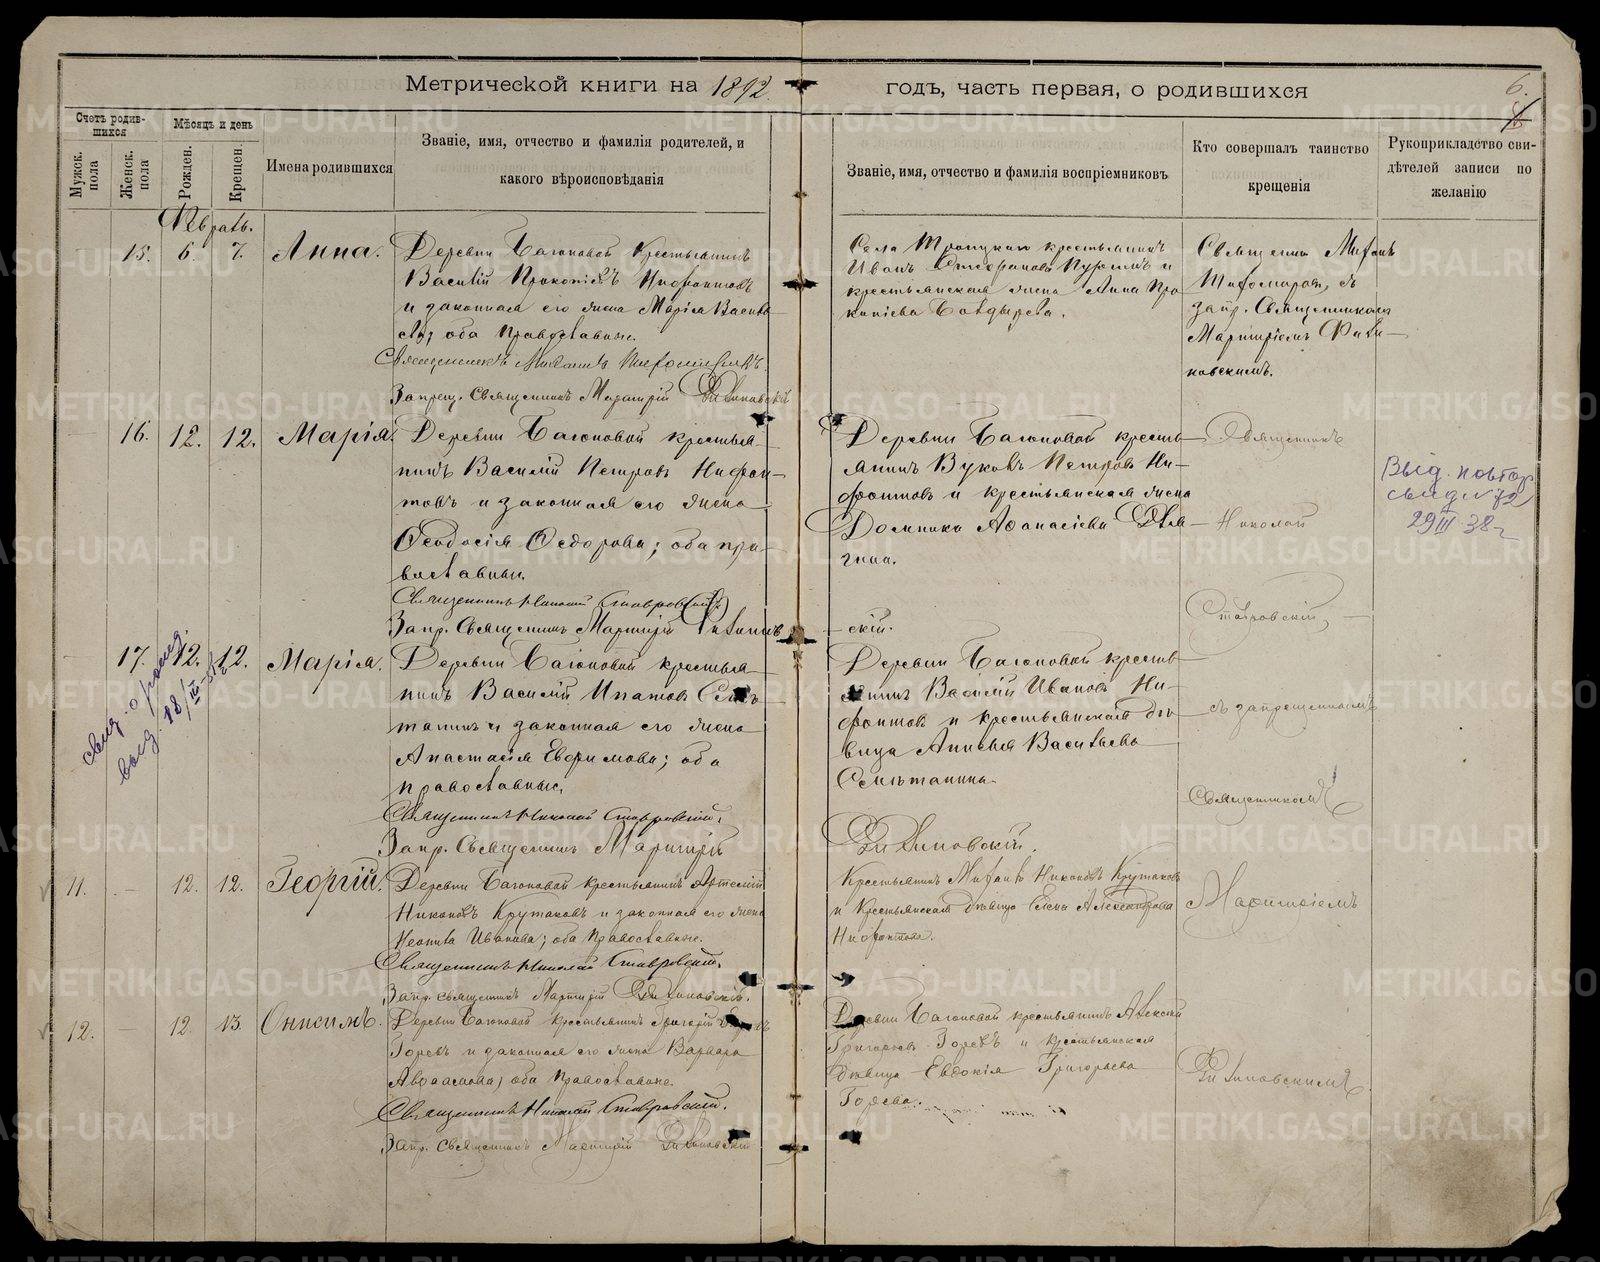 Метрической книги на 1892 годъ, часть первая, о родившихся
6.
Счетъ родив-
шихся
Мѣсяцъ и день
Мужск. пола
Женск. пола
Рожден.
Крещен.
Имена родившихся
Званіе, имя, отчество и фамилія родителей, и
какого вѣроисповѣданія
Званіе, имя, отчество и фамилія воспріемниковъ
Кто совершалъ таинство
крещенія
Рукоприкладство сви-
дѣтелей записи по
желанію
Февраль.
15. 6. 7. Анна.
Деревни Крестьянинъ
Василій Прокопіевъ Нифонтовъ
и законная его жена Марія Василь
ева; оба Православные.
Священникъ
Запрещ. Священникъ Мартирій
Села Троицкаго крестьянинъ
Иванъ и
крестьянская жена Анна Про
копіева Болдырева.
Священникъ
Тихомировъ, съ
запр. Священникомъ
Мартиріемъ Фили-
новскимъ.
16. 12. 12. Марія.
Деревни крестья-
нинъ Василій Петровъ Нифон-
товъ и законная его жена
Ѳеодосія Ѳедорова; оба пра-
вославные.
Священникъ Николай Ставровскій
Запр. Священникъ Мартирій Филинов-
скій.
Деревни кресть-
янинъ Петровъ Ни-
фонтовъ и крестьянская жена
Домника Аѳанасіева
гина.
Священникъ
Николай
Ставровскій,
Выд. повтор
свид № 72
29 III 38 г
17. 12. 12. Марія.
свид. о рожд.
выд. 18/III-
Деревни крестья-
нинъ Василій Ипатовъ Смѣ-
танинъ и законная его жена
Анастасія Евфимова; оба
православные.
Священникъ Николай Ставровскій.
Запр. Священникъ Мартирій
Филиновскій.
Деревни кресть-
янинъ Василій Ивановъ Ни-
фонтовъ и крестьянская дѣ-
вица Васильева
Смѣтанина.
съ запрещеннымъ
Священникомъ
11. 12. 12. Георгій.
Деревни крестьянинъ Артемій
Никоновъ Крутаковъ и законная его жена
Неонила Иванова; оба Православные.
Священникъ Николай Ставровскій.
Запр. священникъ Мартирій Филиновскій.
Крестьянинъ Никоновъ Крутаковъ
и Крестьянская дѣвица Елена Александрова
Нифонтова.
Мартиріемъ
12. 12. 13. Онисимъ.
Деревни крестьянинъ Григорій
Горевъ и законная его жена Варвара
Авраамова; оба Православные.
Священникъ Николай Ставровскій.
Запр. Священникъ Мартирій Филиновскій
Деревни крестьянинъ Алексѣй
Григорьевъ Горевъ и крестьянская
дѣвица Евдокія Григорьева
Горева.
Филиновскимъ.
METRIKI.GASO-URAL.RU